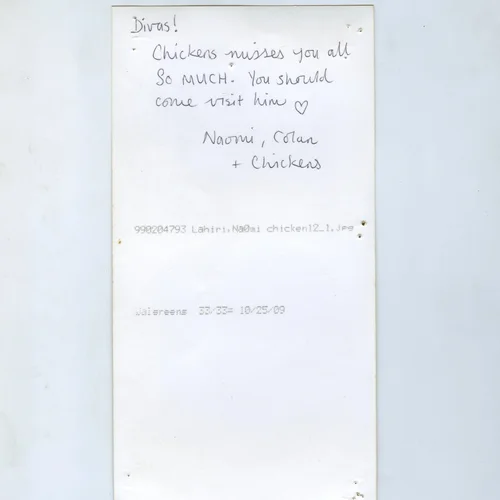 Divas!
Chickens misses you all
SO MUCH. You should
come visit him ♡
Naomi, Colan
+ Chickens
990204793 Lahiri,Na0mi chicken12_1.jpg
Walgreens 33/33# 10/25/09